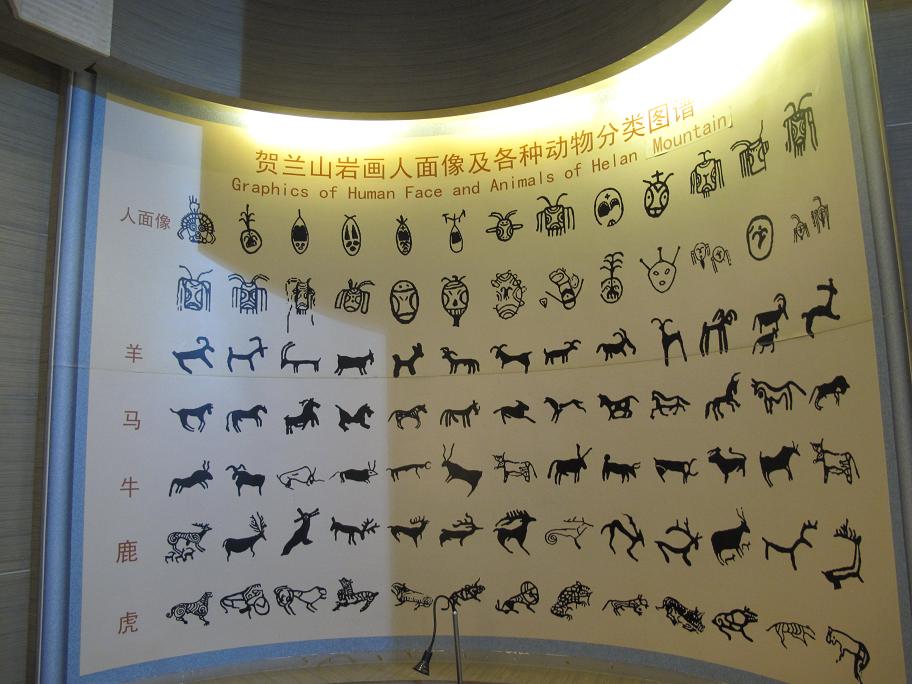 贺兰山岩画人面像及各种动物分类图谱
Graphics of Human Face and Animals of Helan Mountain
人面像
羊
马
牛
鹿
虎